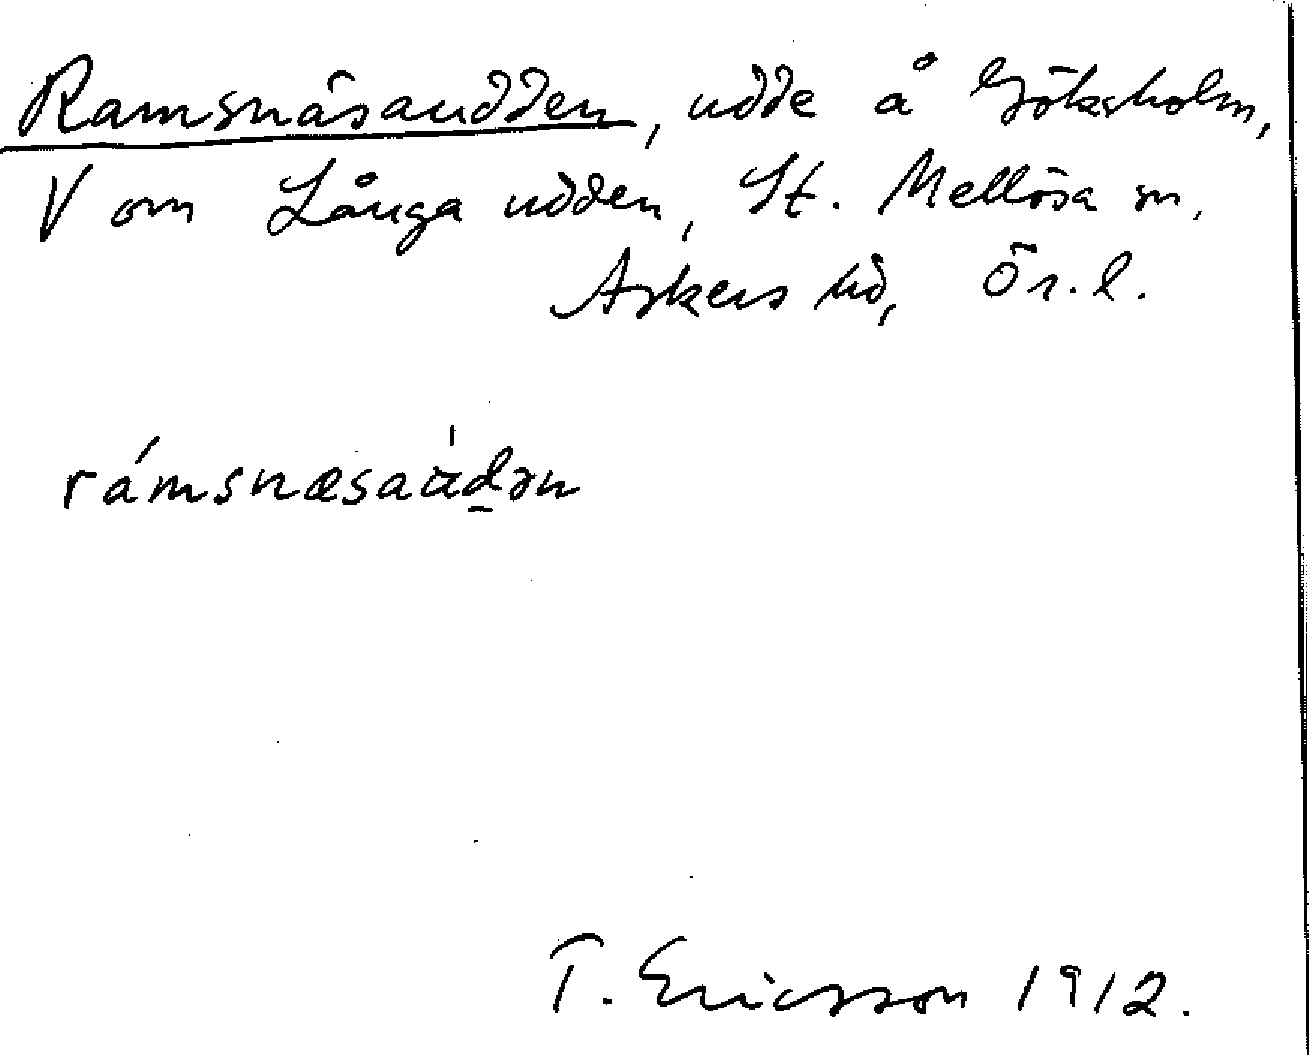 Ramsnäsaudden, udde å Göksholm,
V om Långa udden, St. Mellösa sn,
Askers hd, Ör. l.
rámsnæsaúd̠ən
T. Ericsson 1912.